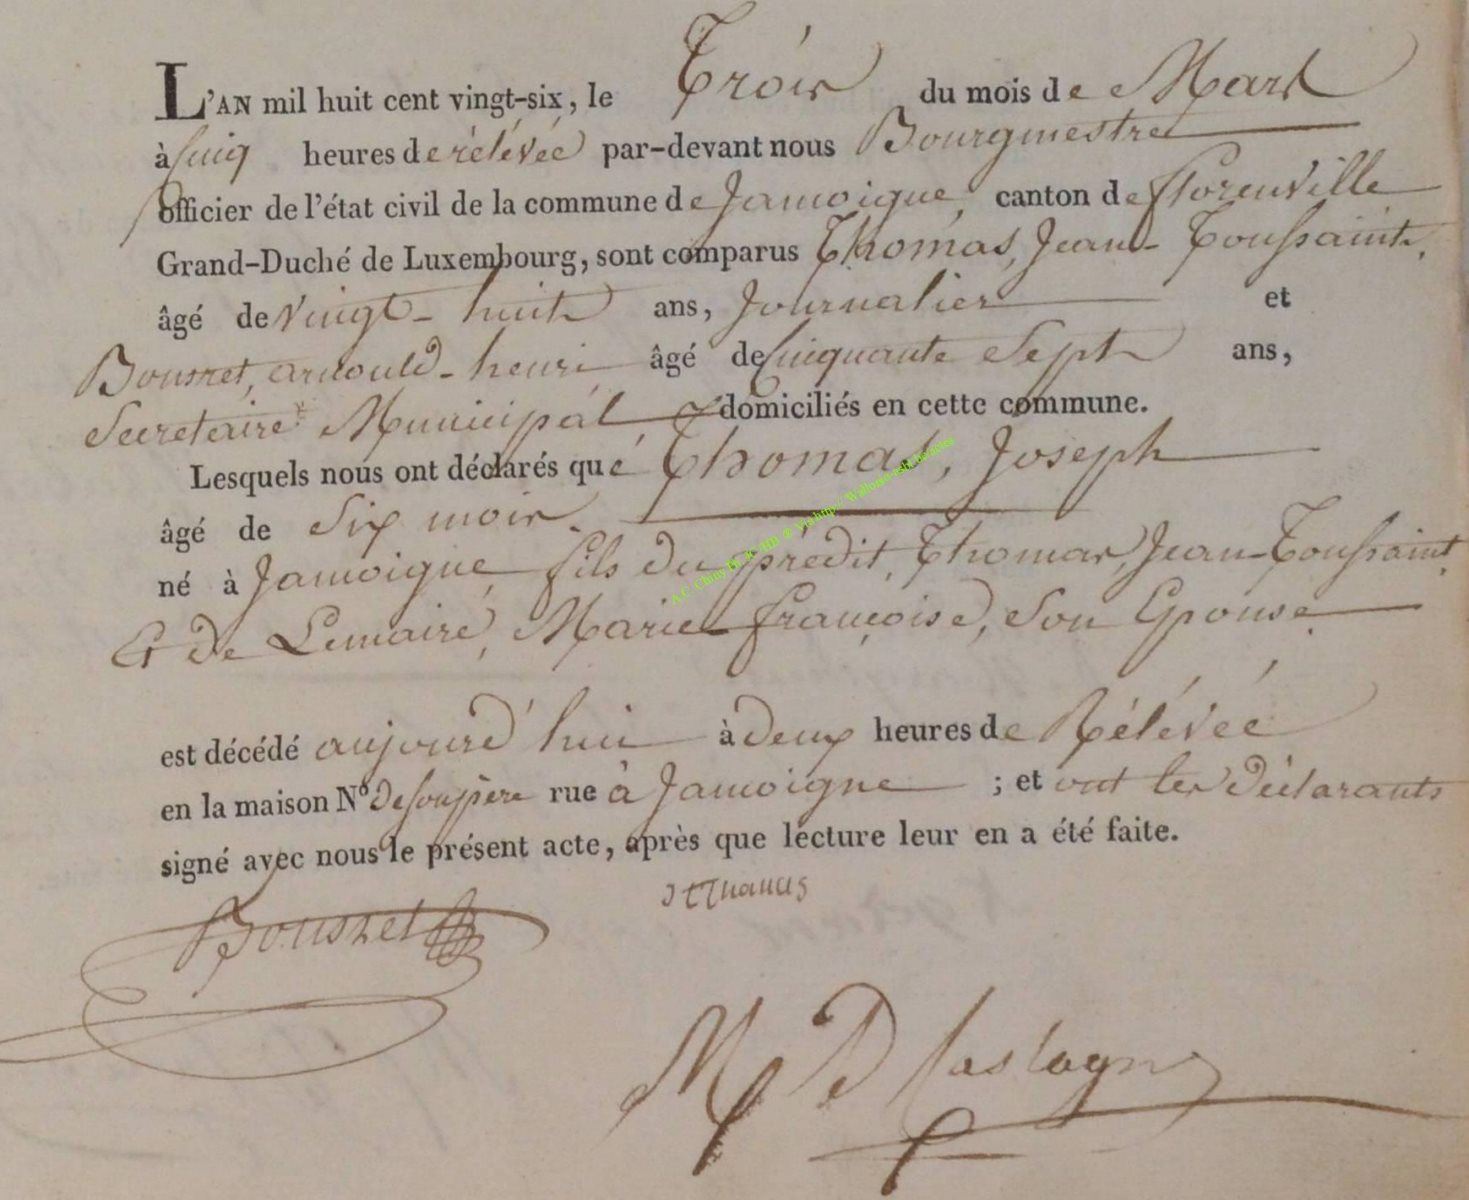 L'AN mil huit cent vingt-six, le Trois du mois de Mars
à Cinq heures de rélévée par-devant nous Bourgmestre
officier de l'état civil de la commune de Jamoigne, canton de florenville
Grand-Duché de Luxembourg, sont comparus Thomas, Jean-Toussaint,
âgé de Vingt-huit ans, Journalier et
Bousret, arnould-henri âgé de Cinquante Sept ans,
Secretaire Municipal domiciliés en cette commune.
Lesquels nous ont déclarés que Thomas, Joseph
âgé de Six mois.
né à Jamoigne fils du prédit, Thomas, Jean-Toussaint,
Et de Lemaire, Marie françoise, Son Epouse
est décédé aujourd'hui à deux heures de Rélévée
en la maison N° de son père rue à Jamoigne ; et ont les déclarants
signé avec nous le présent acte, après que lecture leur en a été faite.
Bousret